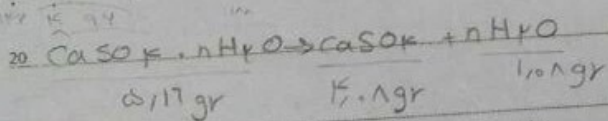 20 CaSO۴ . nH۲O → CaSO۴ + nH۲O
۵,۱٦ gr ۴,۰۸ gr ۱,۰۸ gr